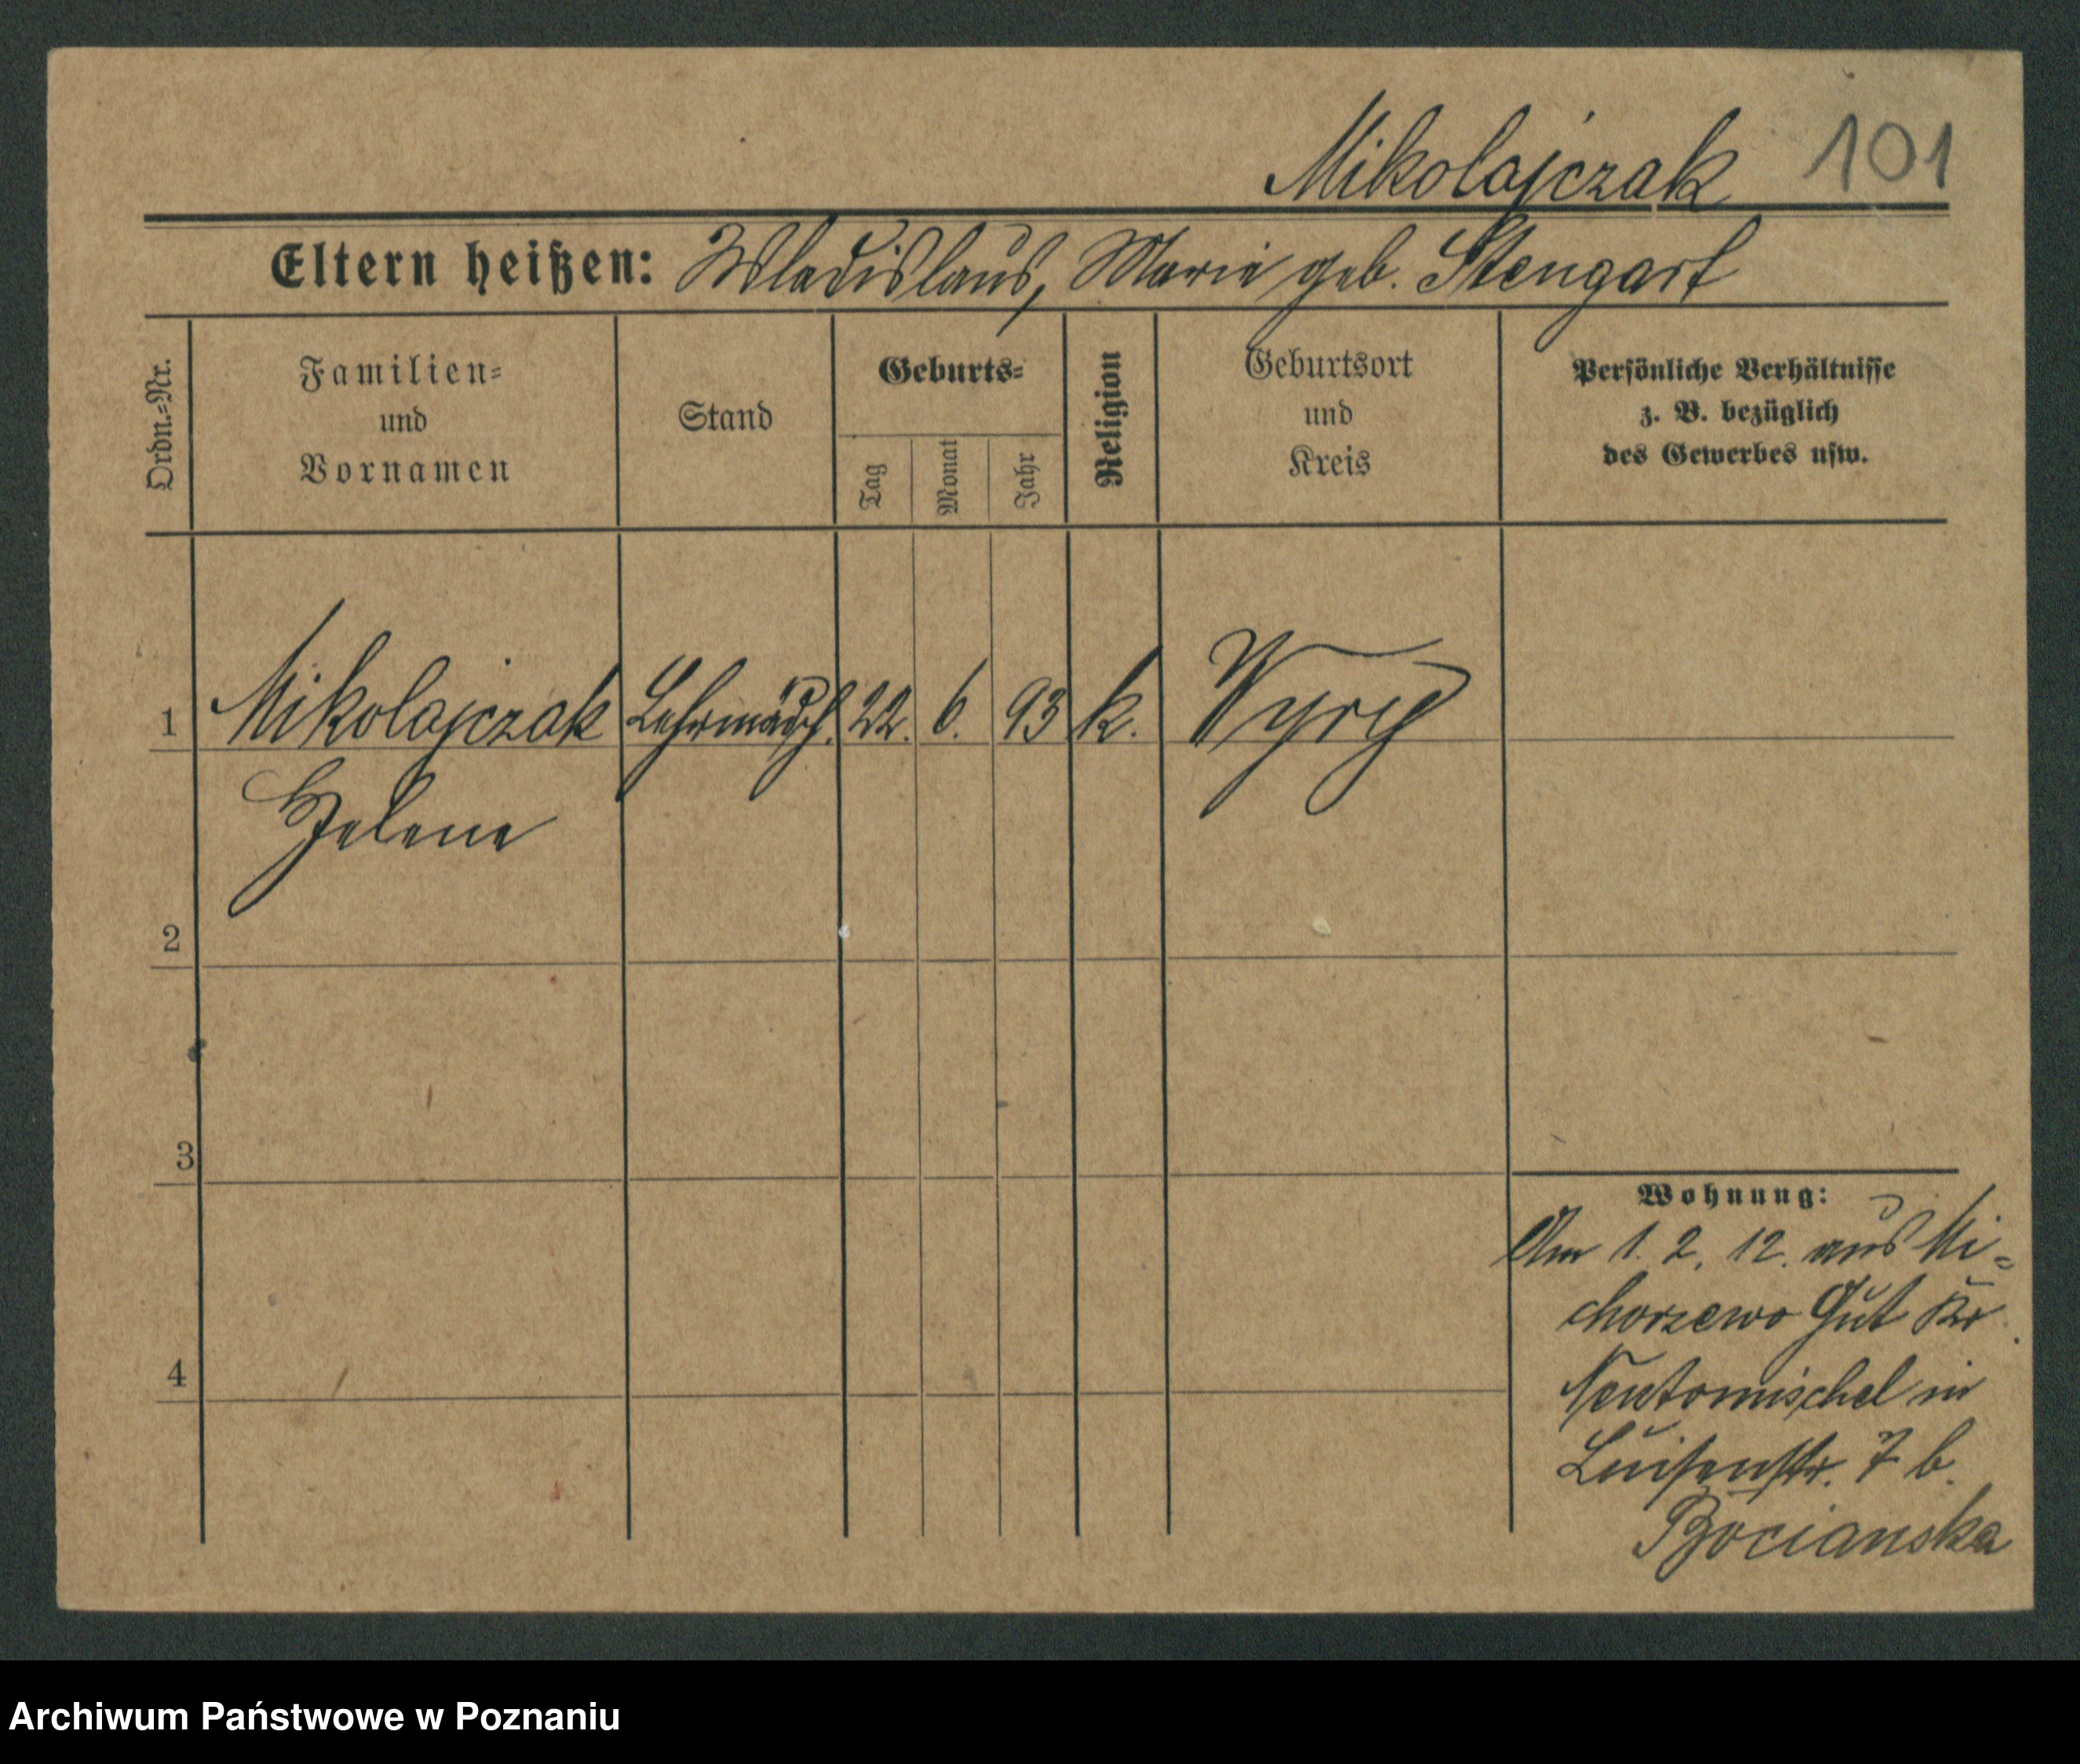 Mikolajczak 101
Eltern heißen: Wladislaus, Marie geb. Stengart
Ordn.=Nr.
Familien=
und
Vornamen
Stand
Geburts=
Tag
Monat
Jahr
Religion
Geburtsort
und
Kreis
Persönliche Verhältnisse
z. B. bezüglich
des Gewerbes usw.
1 Mikolajczak Lehrmädch. 22. 6. 93 k. Wyry
Helene
2
3
4
Wohnung:
Am 1. 2. 12. aus Mi=
chorzewo Gut Kr.
Neutomischel in
Luisenstr. 7 b.
Bocianska
Archiwum Państwowe w Poznaniu